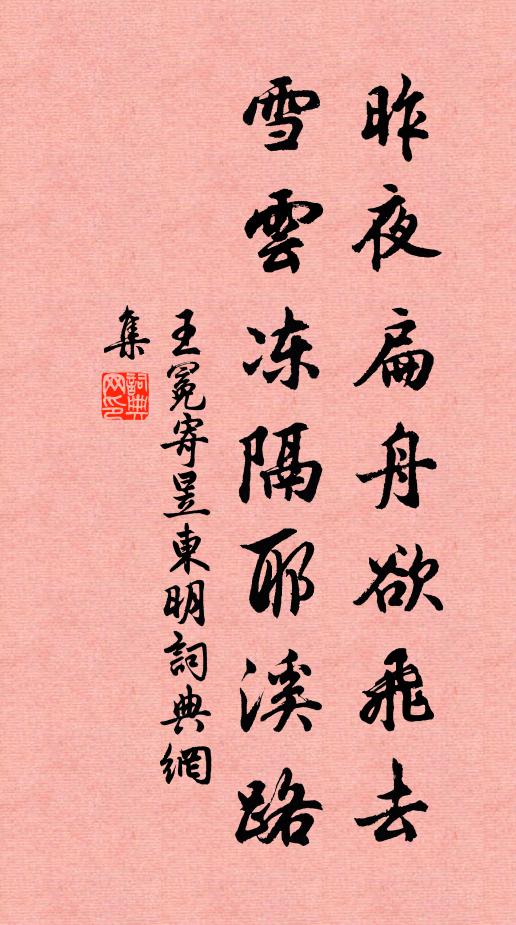 昨夜扁舟欲飛去
雪雲冻隔耶溪路
王冕寄昱東明詞典網
集
詞典
网印